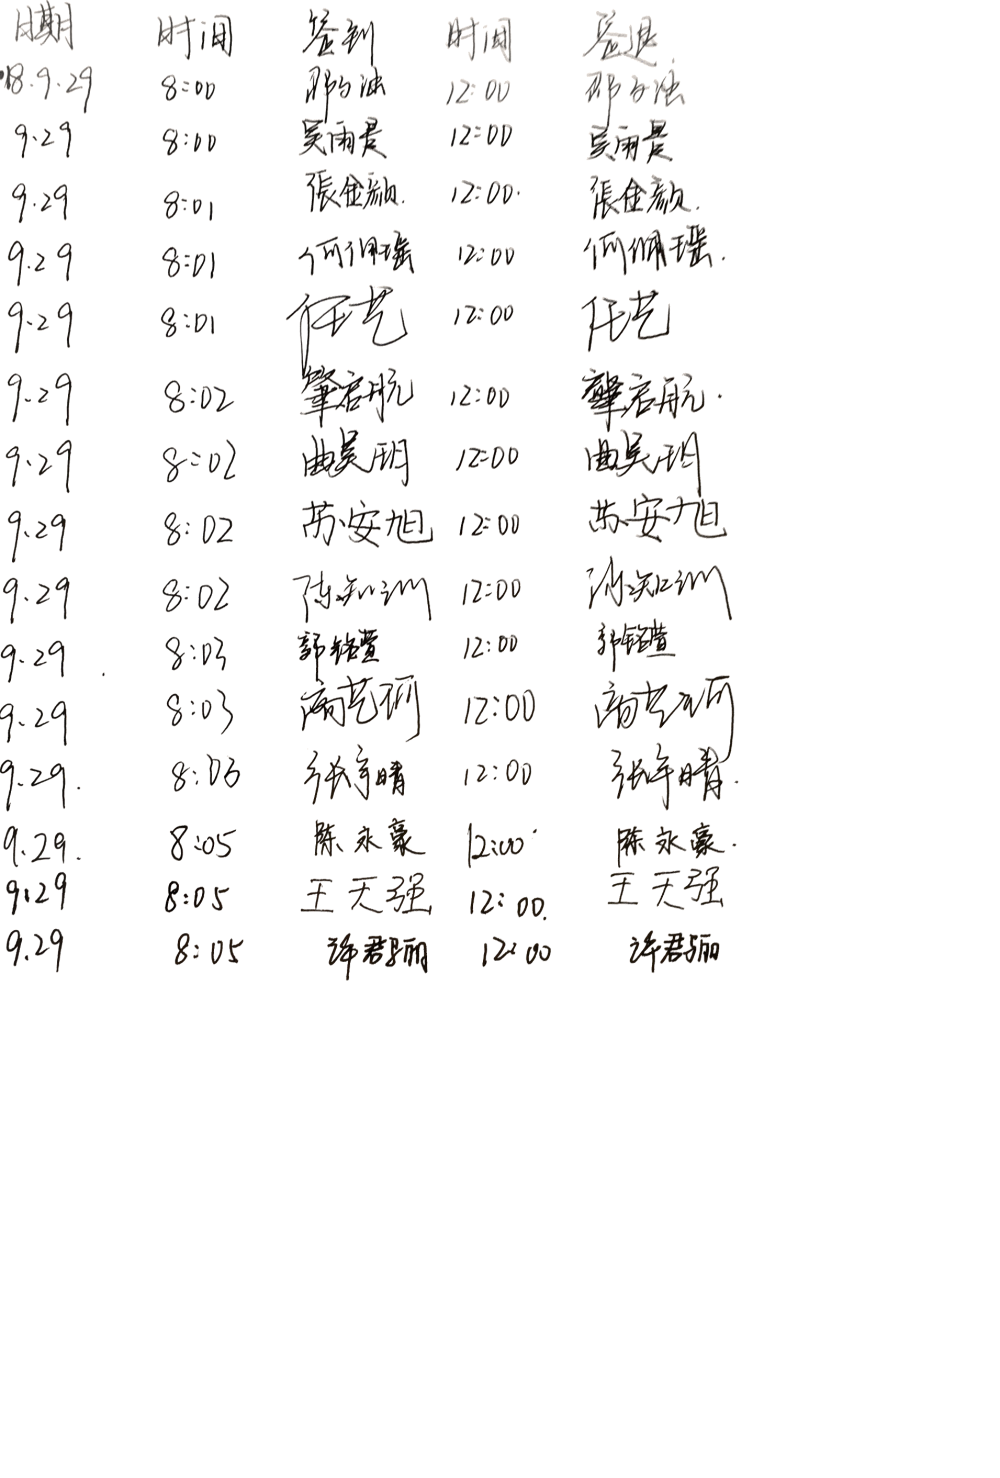 日期 时间 签到 时间 签退
18.9.29 8:00 12:00
9.29 8:00 吴雨君 12:00 吴雨君
9.29 8:01 張金颜. 12:00. 張金颜.
9.29 8:01 何佩瑶 12:00 何佩瑶.
9.29 8:01 任艺 12:00 任艺
9.29 8:02 肇启航 12:00 肇启航.
9.29 8:02 曲昊玥 12:00 曲昊玥
9.29 8:02 苏安旭 12:00 苏安旭
9.29 8:02 陈知训 12:00 陈知训
9.29 8:03 郭铭萱 12:00 郭铭萱
9.29 8:03 12:00
9.29. 8:03 张宇晴 12:00 张宇晴.
9.29. 8:05 陈永豪 12:00 陈永豪.
9.29 8:05 王天强 12:00. 王天强
9.29 8:05 许君骊 12:00 许君骊